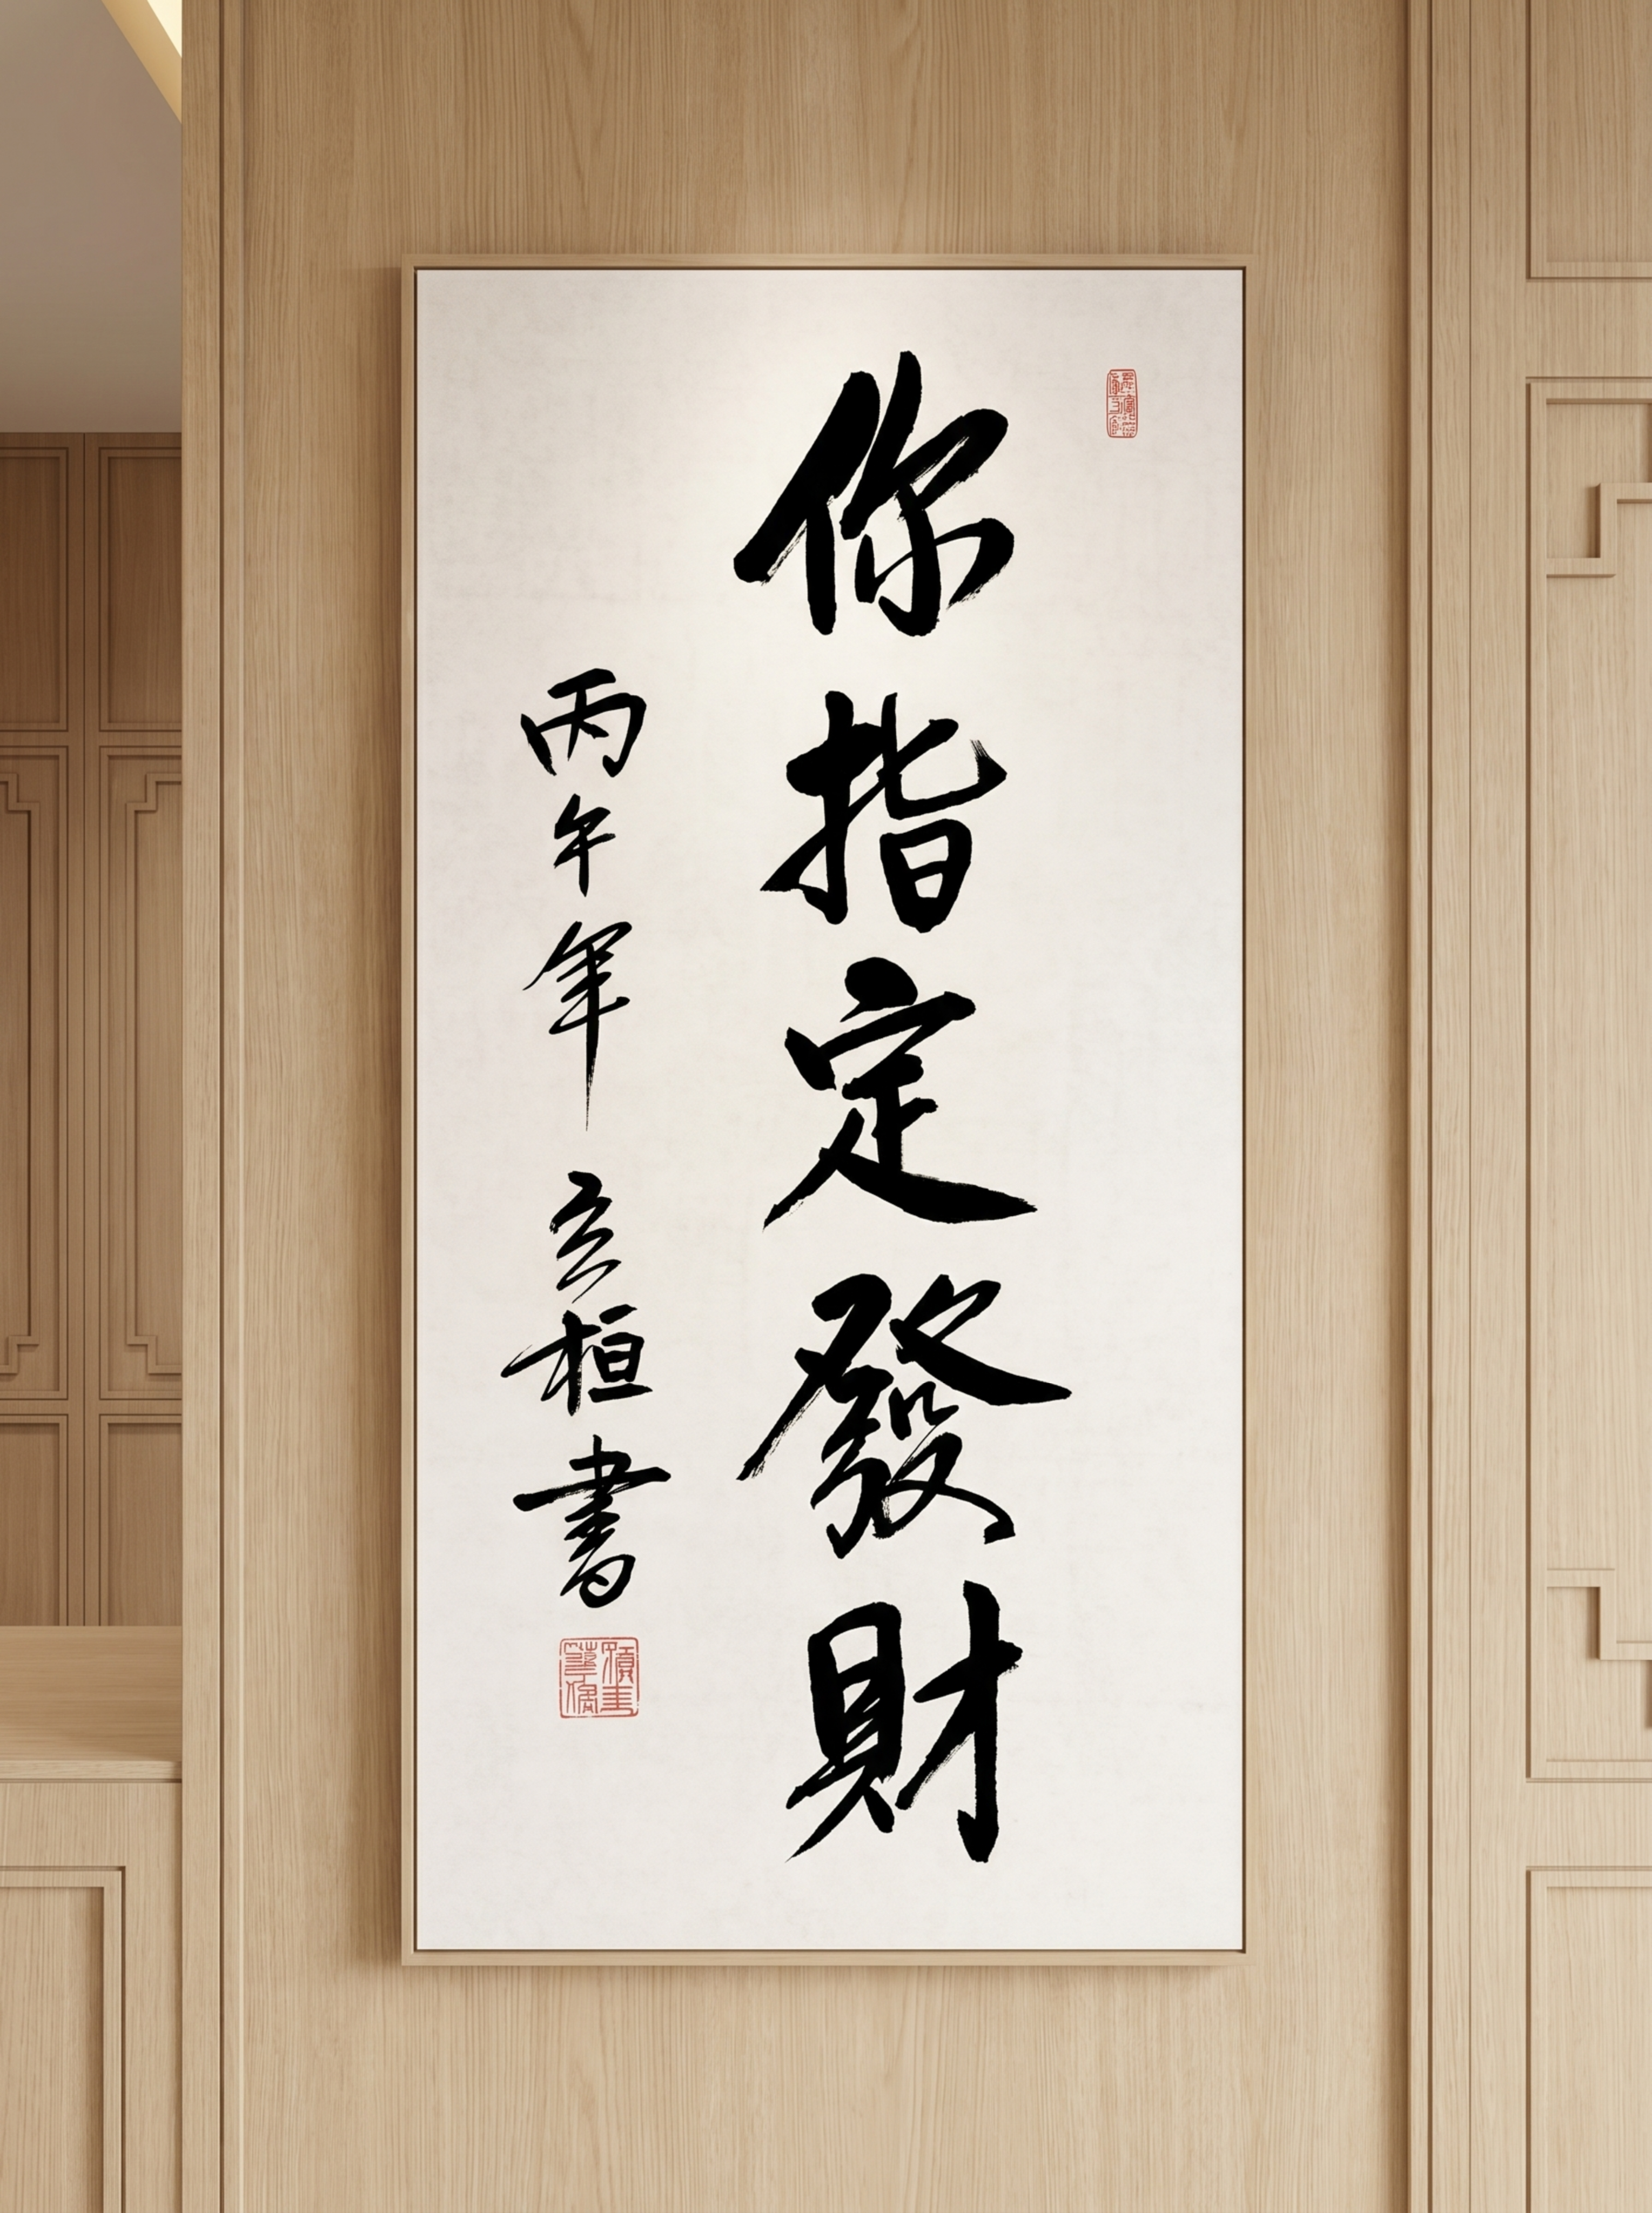 你指定發財
丙午年 玄桓書